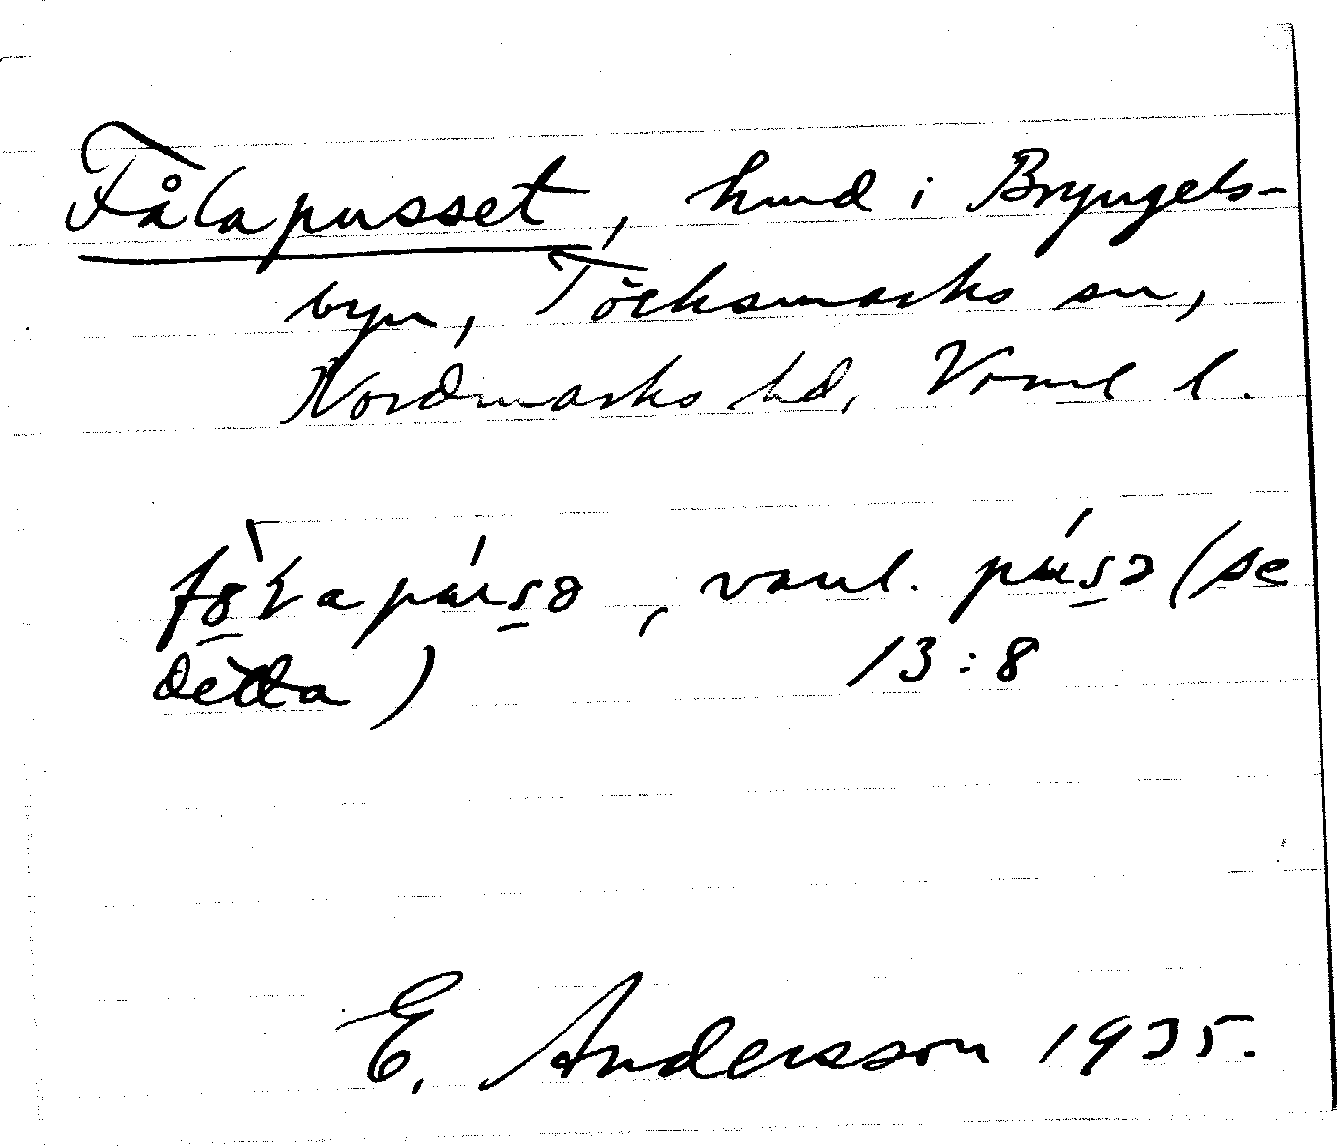 Fålapusset, hund i Bryngels-
byn, Töcksmarks sn,
Nordmarks hd, Värml l.
, vanl. (se
detta) 13:8
E. Andersson 1935.